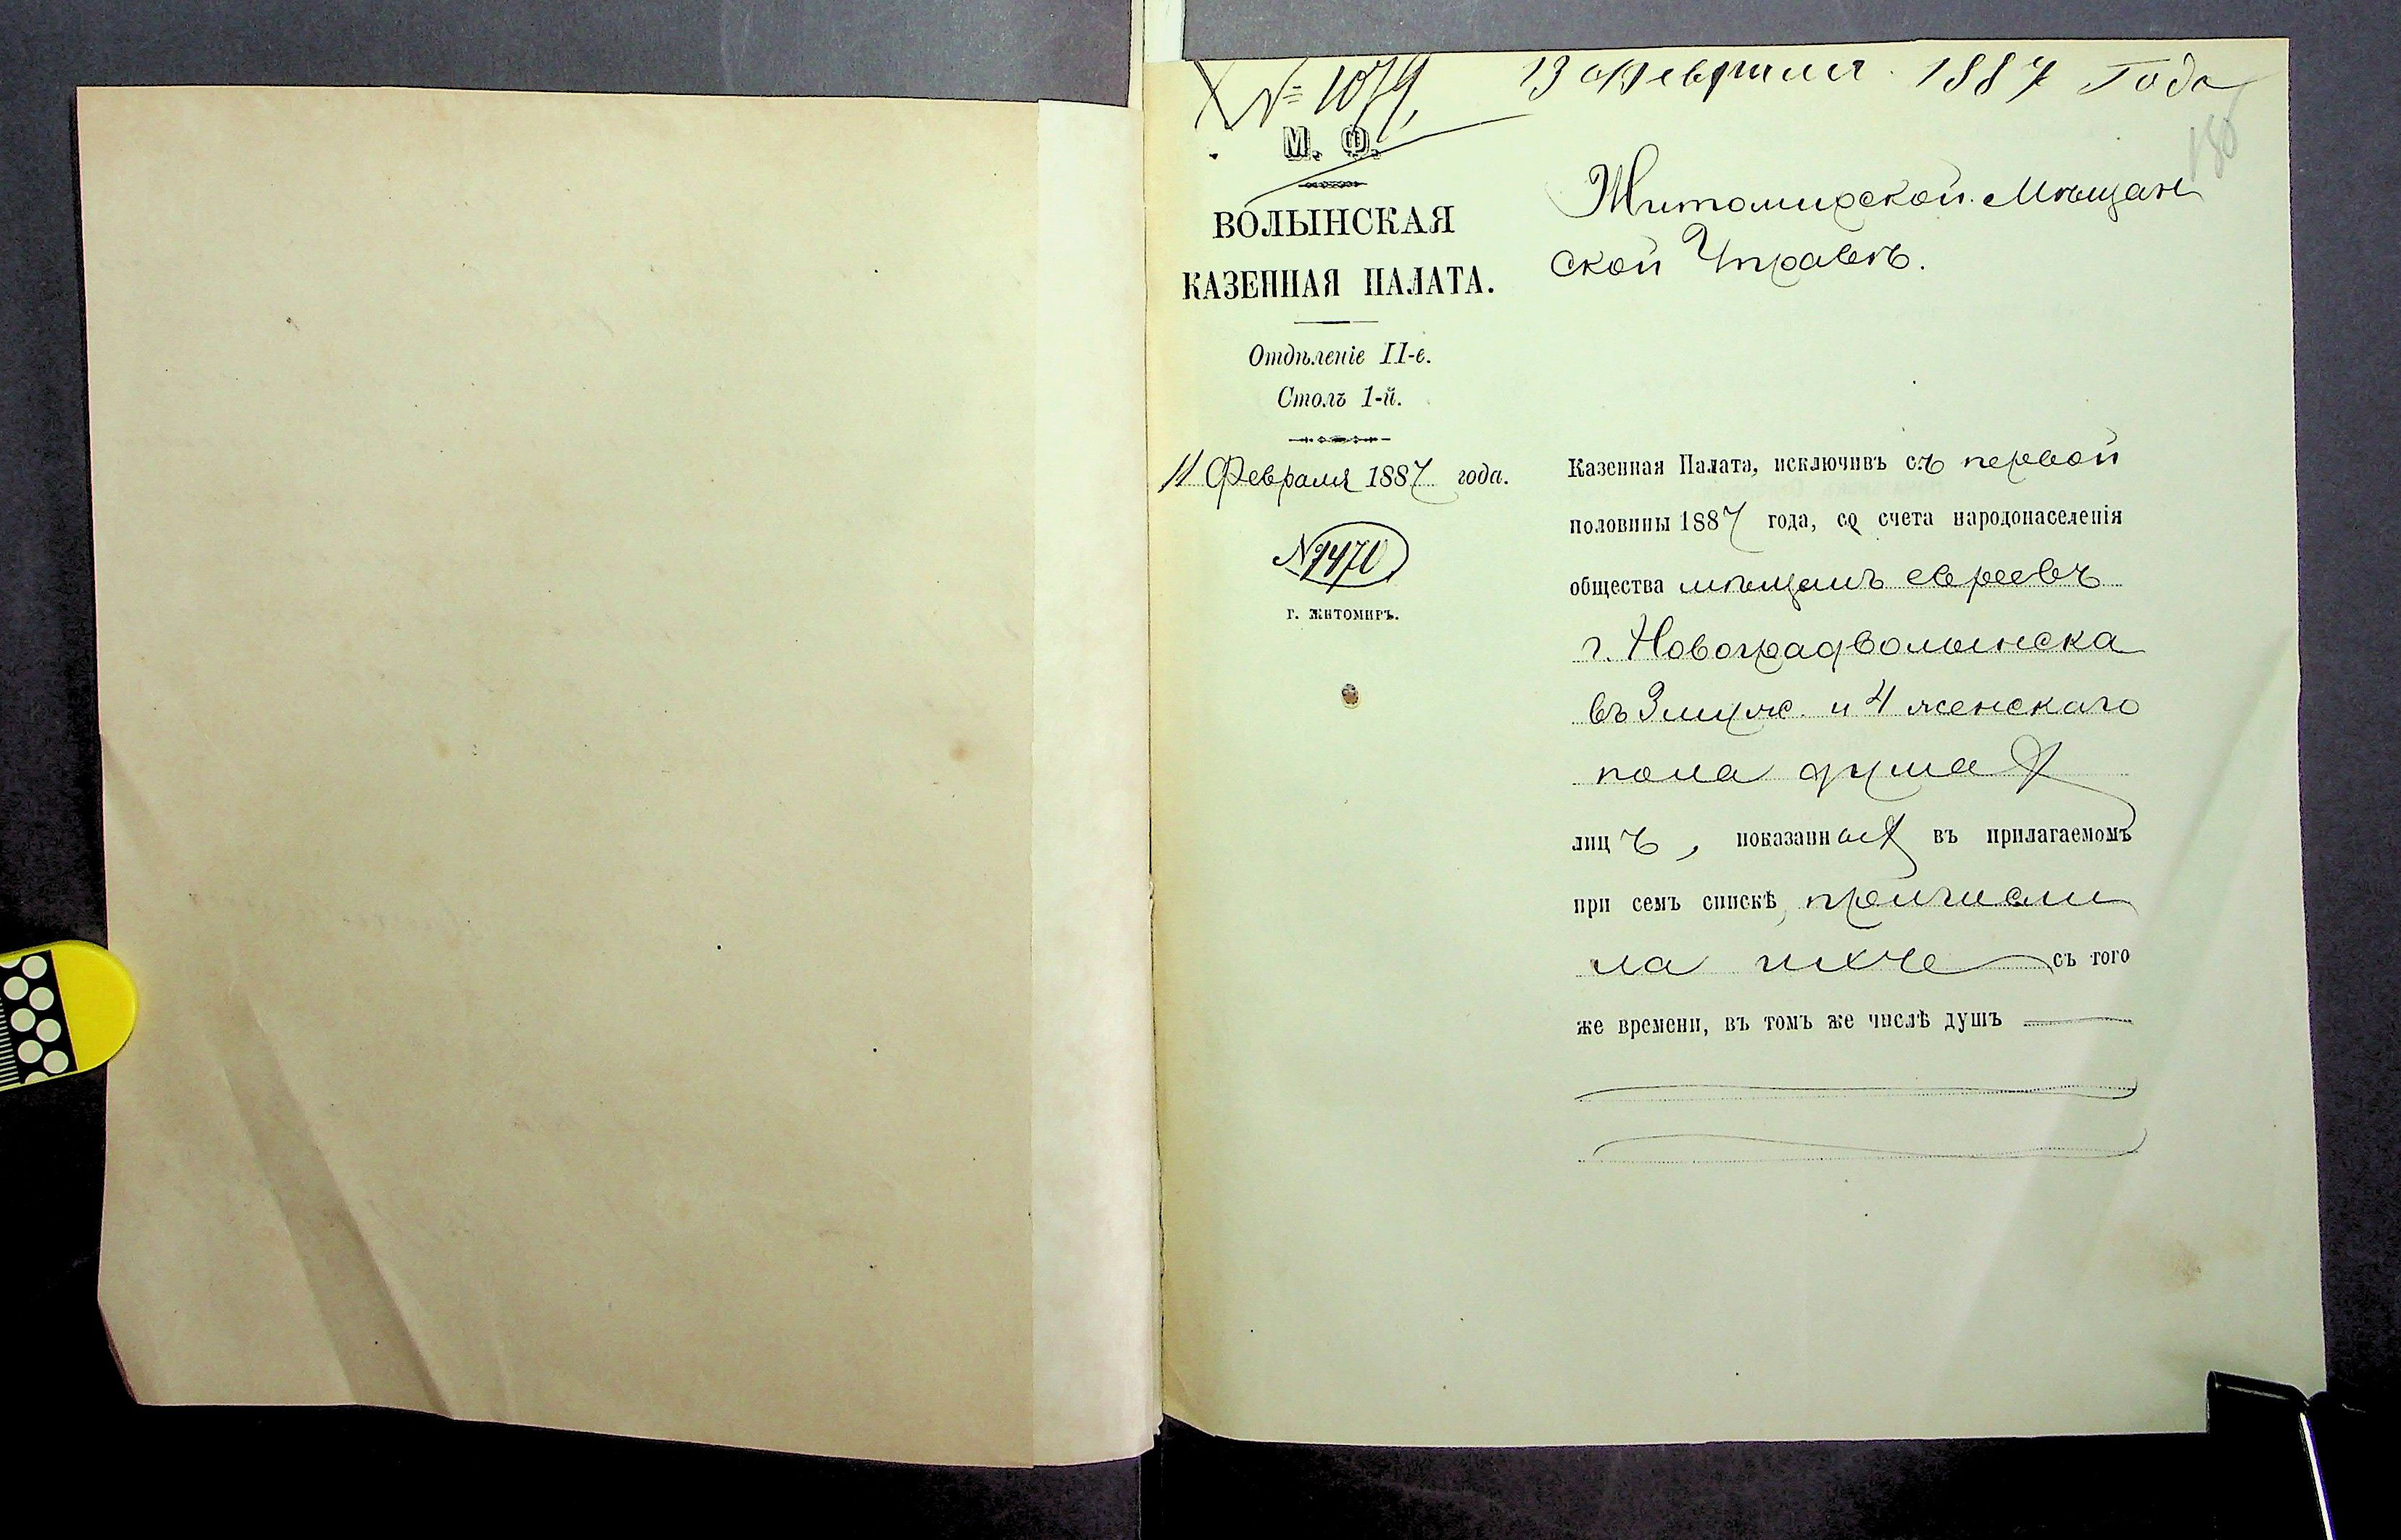 № 1079
13 Февраля 1887 Года
М. Ф.
ВОЛЫНСКАЯ
КАЗЕННАЯ ПАЛАТА.
Отдѣленіе II-е.
Столъ 1-й.
11 Февраля 1887 года.
№ 1470
г. Житомиръ.
Житомирской Мѣщан
ской Управѣ.
Казенная Палата, исключивъ съ первой
половины 1887 года, со счета народонаселенія
общества мѣщанъ евреевъ
г. Новоградволынска
въ 3 муж. и 4 женскаго
пола душах
лицъ, показанных въ прилагаемомъ
при семъ спискѣ, причисли
ла ихъ съ того
же времени, въ томъ же числѣ душъ